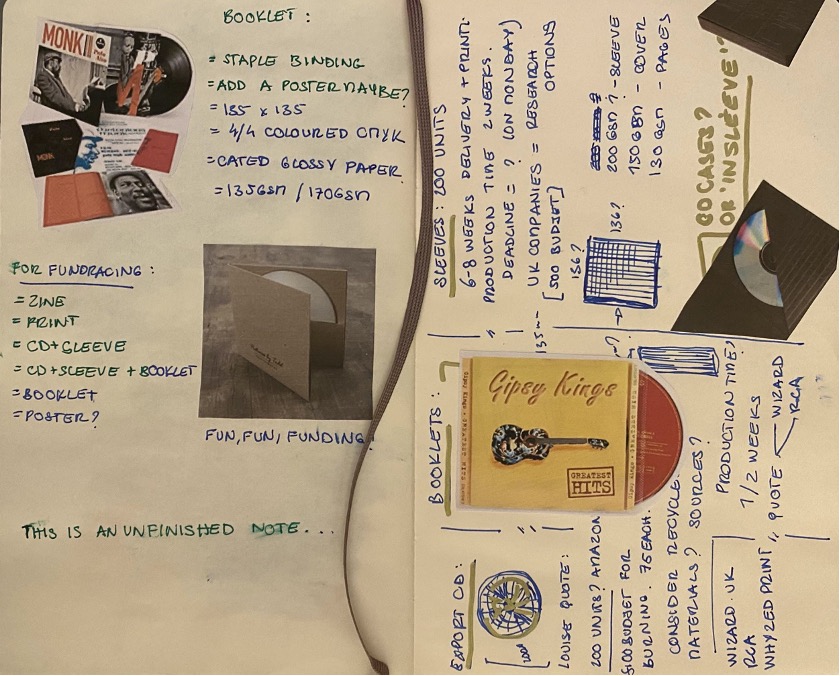 BOOKLET :
= STAPLE BINDING
= ADD A POSTER MAYBE?
= 135 x 135
= 4/4 COLOURED CMYK
= CATED GLOSSY PAPER
= 135GSM / 170GSM
MONK
MONK
FOR FUNDRACING :
= ZINE
= PRINT
= CD + SLEEVE
= CD + SLEEVE + BOOKLET
= BOOKLET
= POSTER?
FUN, FUN, FUNDING!
THIS IS AN UNFINISHED NOTE...
SLEEVES : 200 UNITS
6-8 WEEKS DELIVERY + PRINT:
PRODUCTION TIME 2 WEEKS.
DEADLINE = ? (ON MONDAY)
UK COMPANIES = RESEARCH
OPTIONS
[500 BUDJET]
136?
136?
200 GSM ? - SLEEVE
150 GSM - COVER
130 GSM - PAGES
GO CASES?
OR 'IN SLEEVE'?
BOOKLETS :
Gipsy Kings
GREATEST
HITS
PRODUCTION TIME,
1/2 WEEKS
QUOTE
WIZARD
RCA
EXPORT CD:
LOUISE QUOTE:
200 UNITS? AMAZON
£100 BUDGET FOR
BURNING. 75 EACH.
CONSIDER RECYCLE
MATERIALS? SOURCES?
WIZARD.UK
RCA
WHYZED PRINT